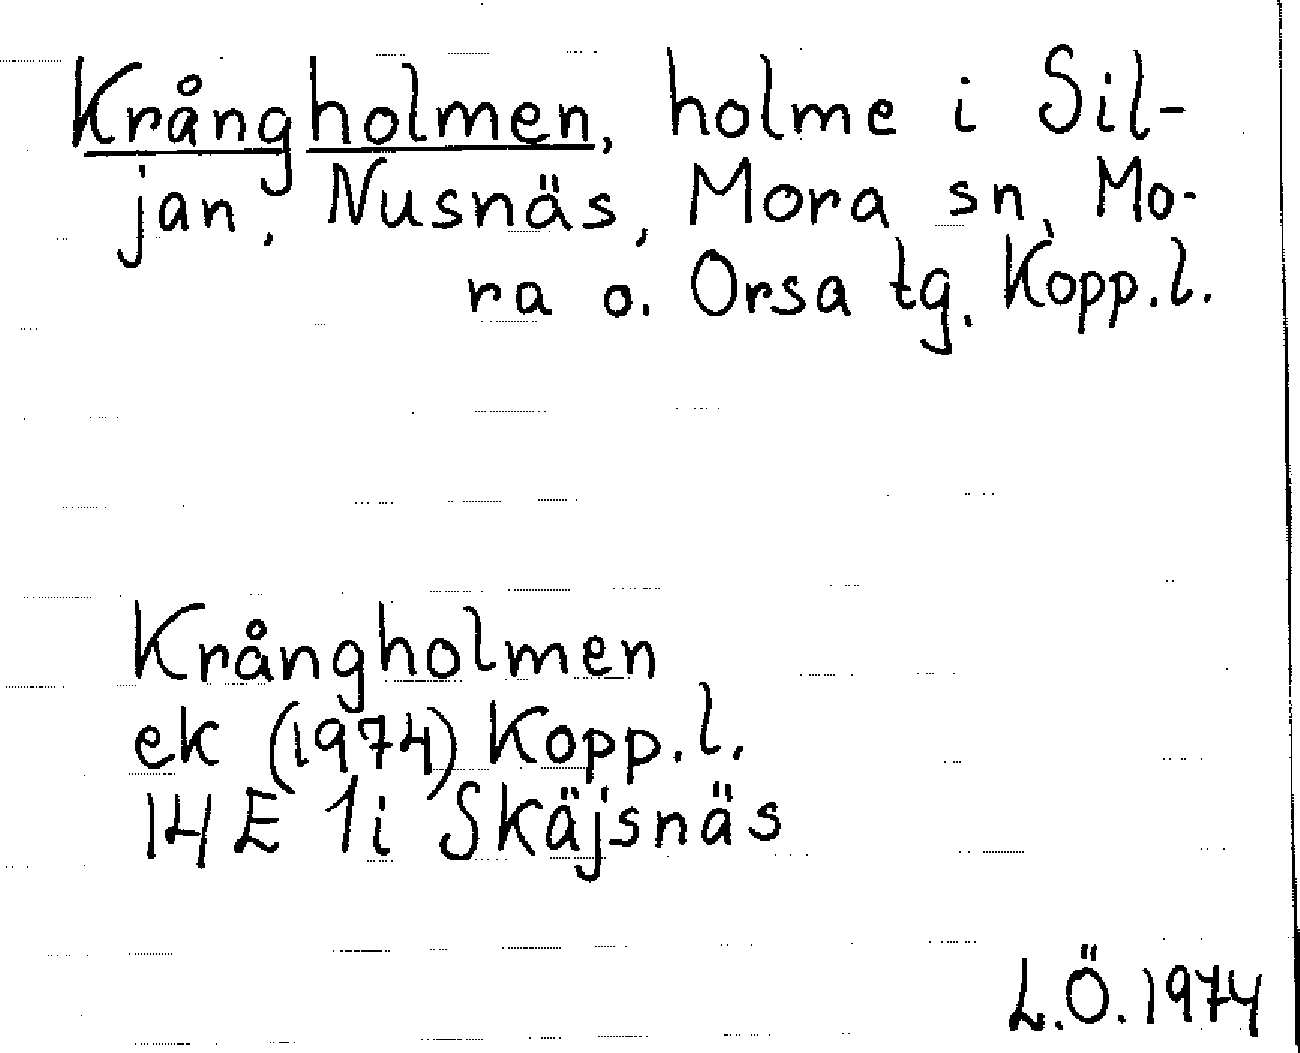 Krångholmen, holme i Sil-
jan, Nusnäs, Mora sn, Mo-
ra o. Orsa tg. Kopp.l.
Krångholmen
ek (1974) Kopp.l.
14 E 1i Skäjsnäs
L.Ö. 1974